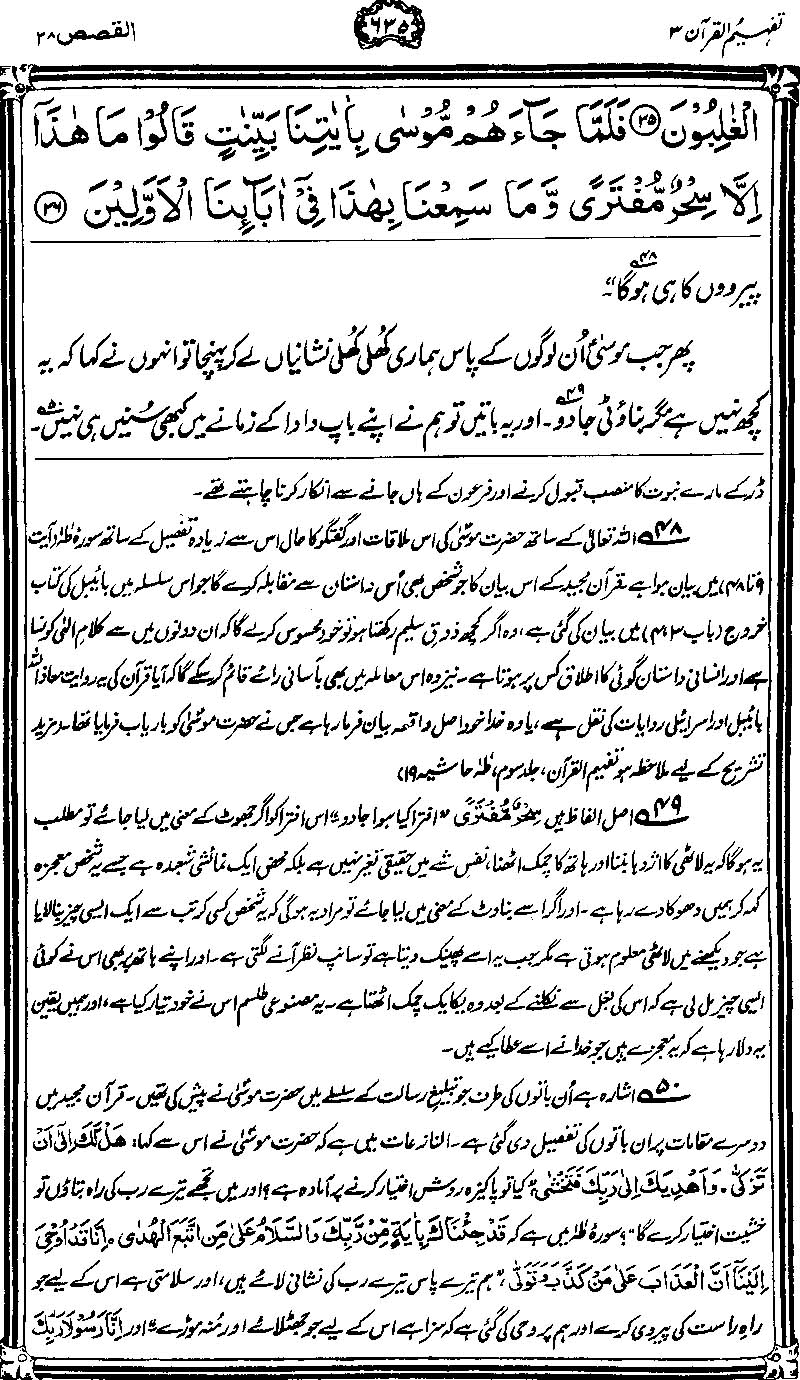 تفہیم القرآن ۳
۶۳۵
القصص ۲۸
الْغٰلِبُوْنَ ﴿۳۵﴾ فَلَمَّا جَآءَهُمْ مُّوْسٰى بِاٰيٰتِنَا بَيِّنٰتٍ قَالُوْا مَا هٰذَآ
اِلَّا سِحْرٌ مُّفْتَرًى وَّمَا سَمِعْنَا بِهٰذَا فِيْٓ اٰبَآئِنَا الْاَوَّلِيْنَ ﴿۳۶﴾
پیرووں کا ہی ہوگا“۔ ۴۸
پھر جب موسیٰؑ اُن لوگوں کے پاس ہماری کُھلی کُھلی نشانیاں لے کر پہنچا تو انہوں نے کہا کہ یہ
کچھ نہیں ہے مگر بناؤٹی جادو ۴۹۔ اور یہ باتیں تو ہم نے اپنے باپ دادا کے زمانے میں کبھی سُنیں ہی نہیں ۵۰۔
ڈر کے مارے نبوت کا منصب قبول کرنے اور فرعون کے ہاں جانے سے انکار کرنا چاہتے تھے۔
۴۸ اللہ تعالیٰ کے ساتھ حضرت موسیٰؑ کی اس ملاقات اور گفتگو کا حال اس سے زیادہ تفصیل کے ساتھ سورۂ طٰہٰ (آیت
۹ تا ۴۸) میں بیان ہوا ہے۔ قرآن مجید کے اس بیان کا جو شخص بھی اُس داستان سے مقابلہ کرے گا جو اس سلسلہ میں بائیبل کی کتاب
خروج (باب ۳،۴) میں بیان کی گئی ہے، وہ اگر کچھ ذوق سلیم رکھتا ہو تو خود محسوس کرلے گا کہ ان دونوں میں سے کلام الٰہی کونسا
ہے اور انسانی داستان گوئی کا اطلاق کس پر ہوتا ہے۔ نیز وہ اس معاملہ میں بھی بآسانی رائے قائم کرسکے گا کہ آیا قرآن کی یہ روایت معاذ اللہ
بائیبل اور اسرائیلی روایات کی نقل ہے، یا وہ خدا خود اصل واقعہ بیان فرما رہا ہے جس نے حضرت موسیٰؑ کو باریاب فرمایا تھا۔ (مزید
تشریح کے لیے ملاحظہ ہو تفہیم القرآن، جلد سوم، طٰہٰ حاشیہ ۱۹)
۴۹ اصل الفاظ ہیں سِحْرٌ مُّفْتَرًى ”افترا کیا ہوا جادو“ اس افترا کو اگر جھوٹ کے معنی میں لیا جائے تو مطلب
یہ ہوگا کہ یہ لاٹھی کا اژدہا بننا اور ہاتھ کا چمک اٹھنا، نفس شے میں حقیقی تغیر نہیں ہے بلکہ محض ایک نمائشی شعبدہ ہے جسے یہ شخص معجزہ
کہہ کر ہمیں دھوکا دے رہا ہے۔ اور اگر اسے بناوٹ کے معنی میں لیا جائے تو مراد یہ ہوگی کہ یہ شخص کسی کرتب سے ایک ایسی چیز بنا لایا
ہے جو دیکھنے میں لاٹھی معلوم ہوتی ہے مگر جب یہ اسے پھینک دیتا ہے تو سانپ نظر آنے لگتی ہے۔ اور اپنے ہاتھ پر بھی اس نے کوئی
ایسی چیز مل لی ہے کہ اس کی بغل سے نکلنے کے بعد وہ یکایک چمک اٹھتا ہے۔ یہ مصنوعی طلسم اس نے خود تیار کیا ہے، اور ہمیں یقین
یہ دلا رہا ہے کہ یہ معجزے ہیں جو خدا نے اسے عطا کیے ہیں۔
۵۰ اشارہ ہے اُن باتوں کی طرف جو تبلیغ رسالت کے سلسلے میں حضرت موسیٰؑ نے پیش کی تھیں۔ قرآن مجید میں
دوسرے مقامات پر ان باتوں کی تفصیل دی گئی ہے۔ النازعات میں ہے کہ حضرت موسیٰؑ نے اس سے کہا: هَلْ لَّكَ اِلٰٓى اَنْ
تَزَكّٰى۔ وَاَهْدِيَكَ اِلٰى رَبِّكَ فَتَخْشٰى، ”کیا تو پاکیزہ روش اختیار کرنے پر آمادہ ہے؟ اور میں تجھے تیرے رب کی راہ بتاؤں تو
خشیت اختیار کرے گا“؟ سورۂ طٰہٰ میں ہے کہ قَدْ جِئْنٰكَ بِاٰيَةٍ مِّنْ رَّبِّكَ وَالسَّلَامُ عَلٰى مَنِ اتَّبَعَ الْهُدٰى ہ اِنَّا قَدْ اُوْحِيَ
اِلَيْنَآ اَنَّ الْعَذَابَ عَلٰى مَنْ كَذَّبَ وَتَوَلّٰى، ”ہم تیرے پاس تیرے رب کی نشانی لائے ہیں، اور سلامتی ہے اس کے لیے جو
راہ راست کی پیروی کرے اور ہم پر وحی کی گئی ہے کہ سزا ہے اس کے لیے جو جھٹلائے اور منہ موڑے“، اور اِنَّا رَسُوْلَا رَبِّكَ